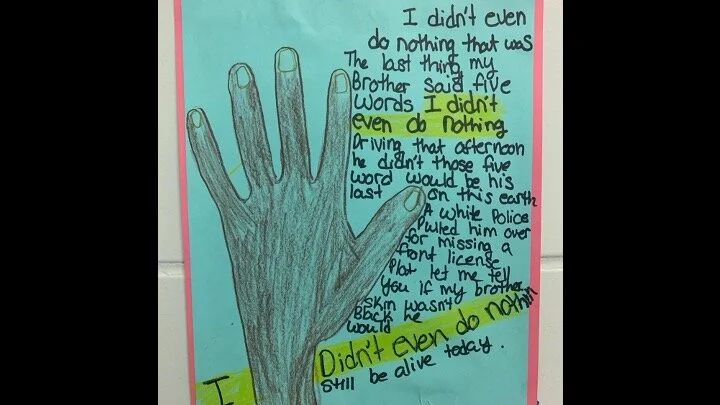 I didn't even
do nothing that was
The last thing my
Brother said five
words I didn't
even do nothing
Driving that afternoon
he didn't those five
word would be his
last on this earth
A white Police
Pulled him over
for missing a
front license
Plat let me tell
you if my brother
skin wasn't
Black he
would
I Didn't even do nothin
still be alive today.